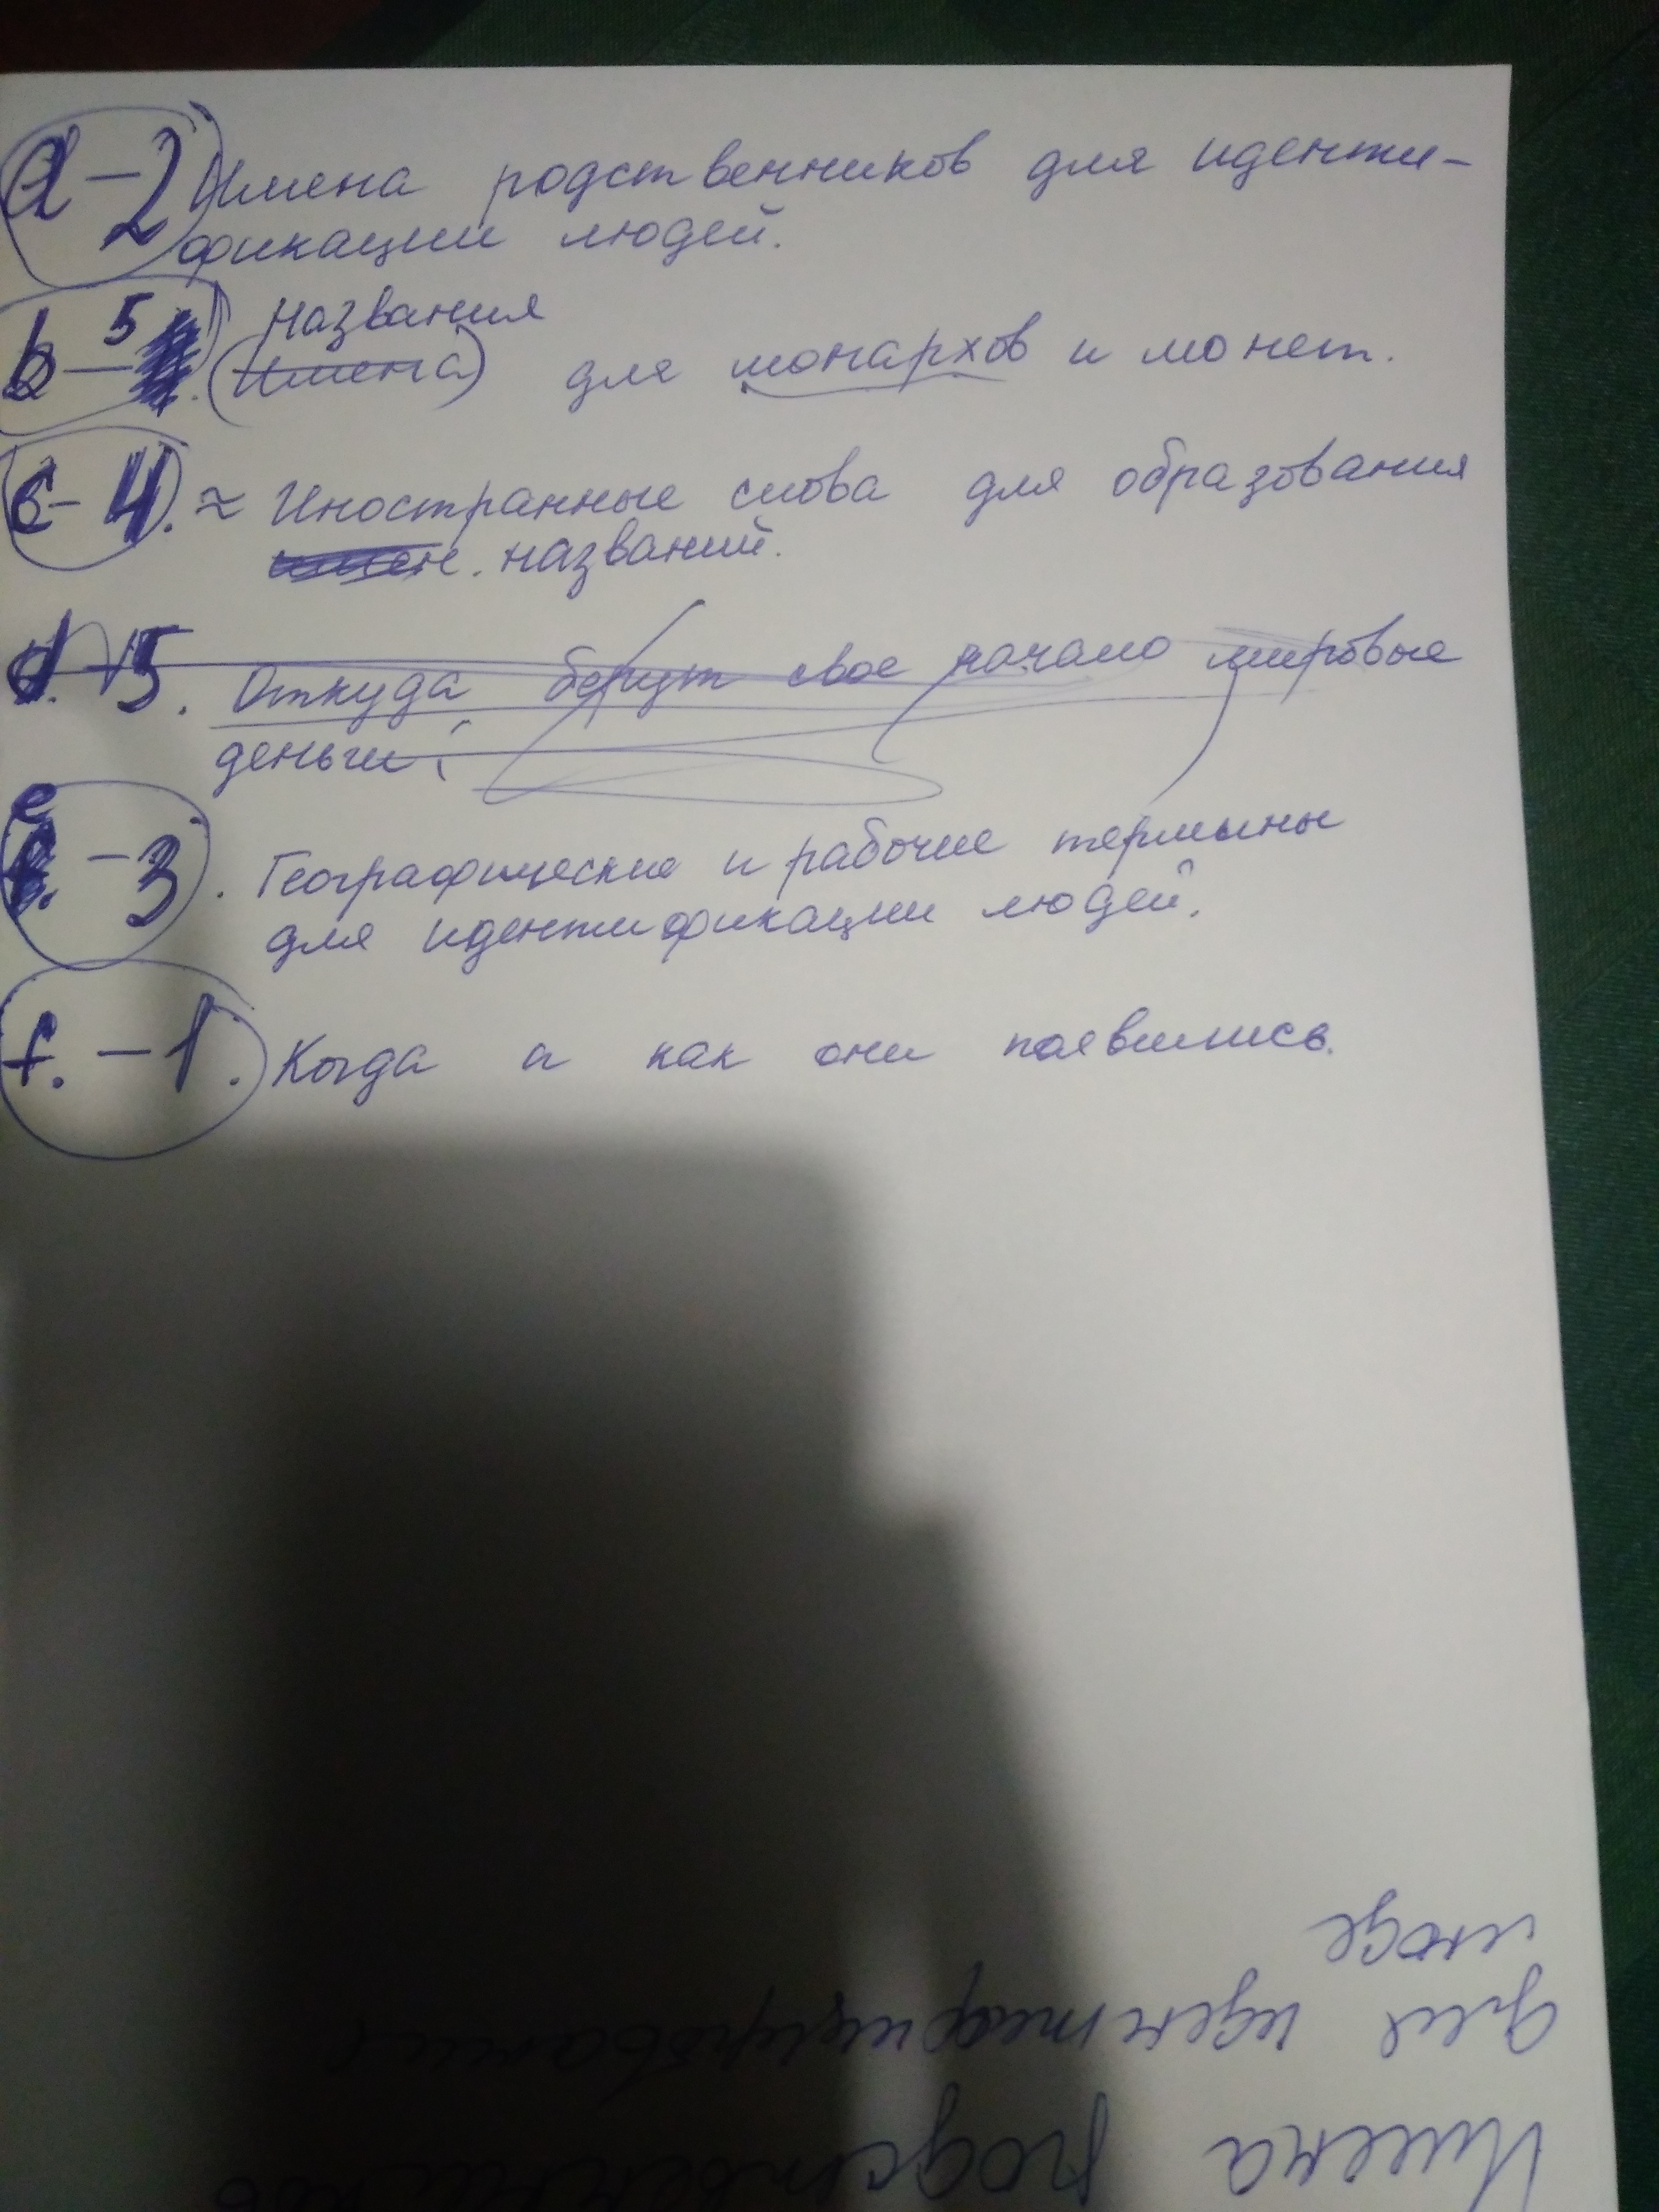 a - 2 Имена родственников для иденти-
фикации людей.
Названия
b - 5 (Имена) для монархов и монет.
c - 4. ≈ Иностранные слова для образования
названий.
d. 5. Откуда берут свое начало мировые
деньги.
e - 3. Географические и рабочие термины
для идентификации людей.
f. - 1. Когда и как они появились.
Имена родственников
для идентифицирования
люде